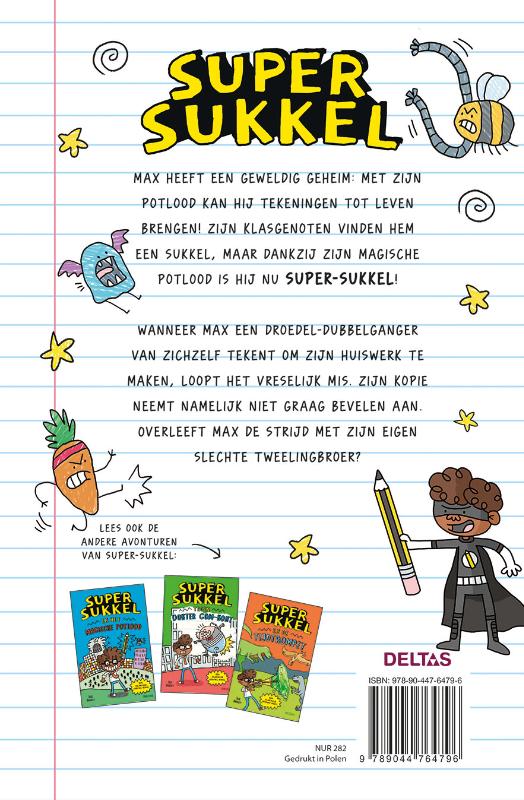 SUPER
SUKKEL
MAX HEEFT EEN GEWELDIG GEHEIM: MET ZIJN
POTLOOD KAN HIJ TEKENINGEN TOT LEVEN
BRENGEN! ZIJN KLASGENOTEN VINDEN HEM
EEN SUKKEL, MAAR DANKZIJ ZIJN MAGISCHE
POTLOOD IS HIJ NU SUPER-SUKKEL!
WANNEER MAX EEN DROEDEL-DUBBELGANGER
VAN ZICHZELF TEKENT OM ZIJN HUISWERK TE
MAKEN, LOOPT HET VRESELIJK MIS. ZIJN KOPIE
NEEMT NAMELIJK NIET GRAAG BEVELEN AAN.
OVERLEEFT MAX DE STRIJD MET ZIJN EIGEN
SLECHTE TWEELINGBROER?
LEES OOK DE
ANDERE AVONTUREN
VAN SUPER-SUKKEL:
SUPER
SUKKEL
EN HET
MAGISCHE POTLOOD
SUPER
SUKKEL
TEGEN
SUPER
SUKKEL
EN DE
DELTAS
ISBN: 978-90-447-6479-6
9 789044 764796
NUR 282
Gedrukt in Polen